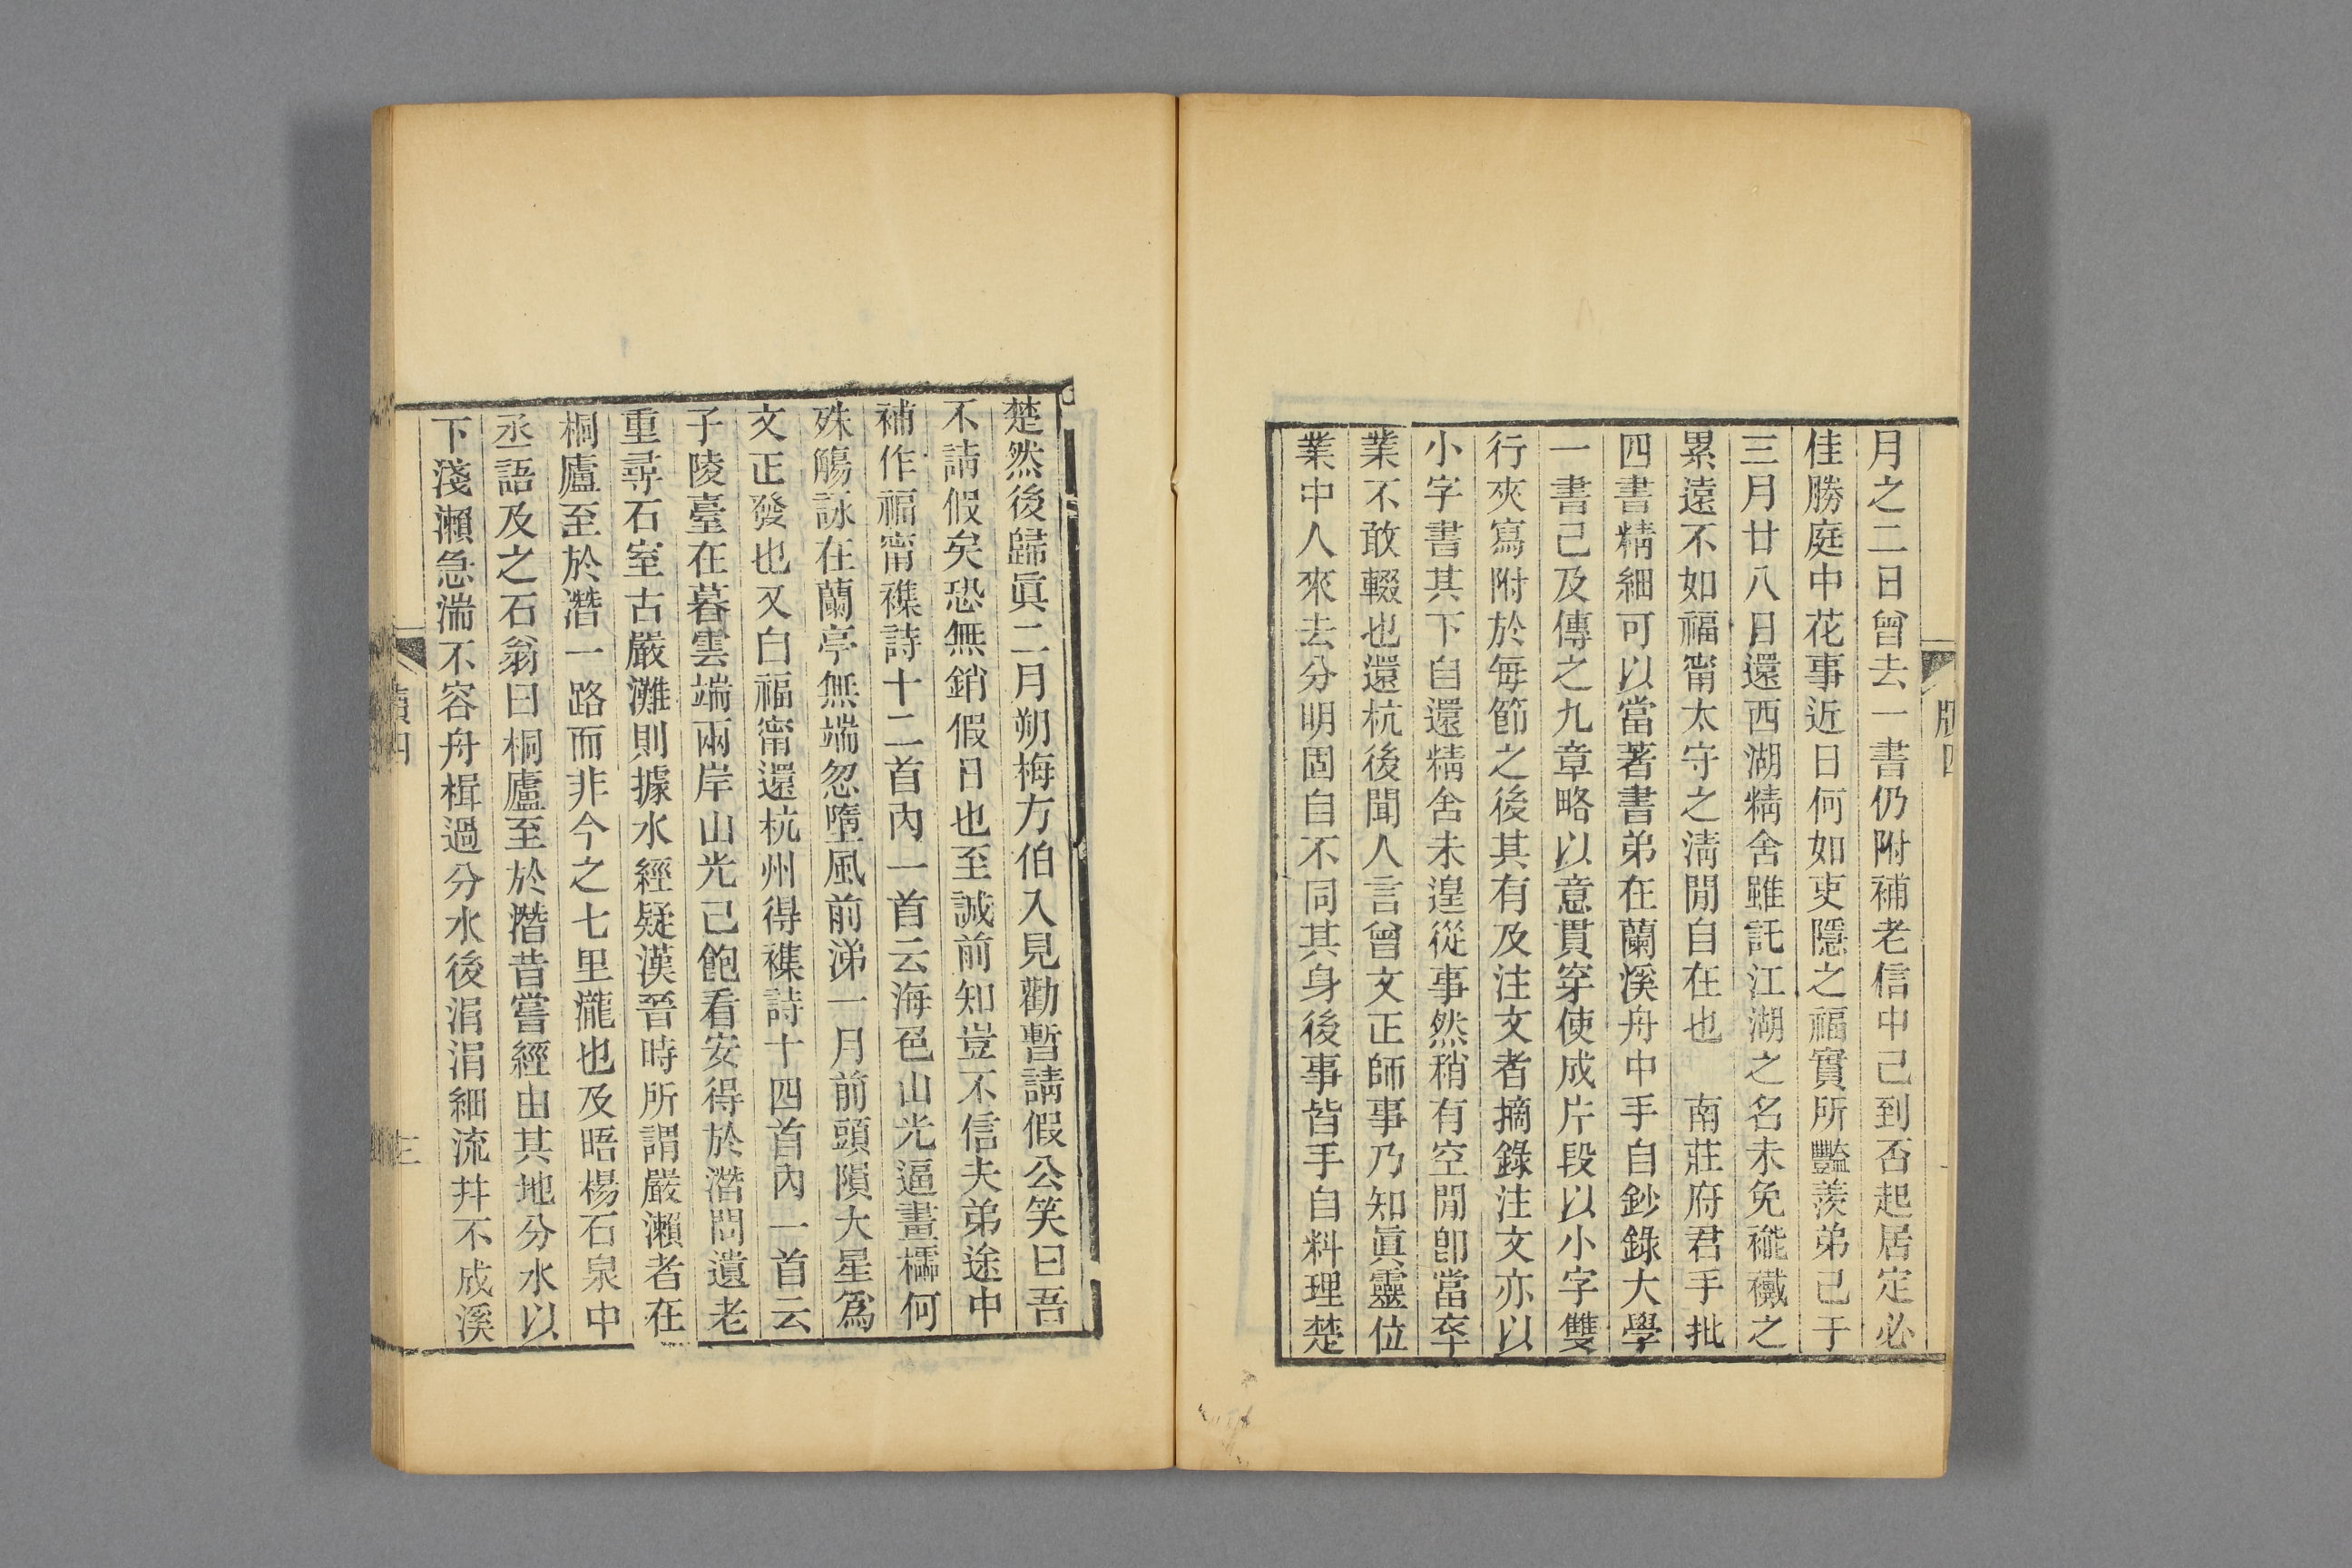 月之二日曾去一書仍附補老信中已到否起居定必
佳勝庭中花事近日何如吏隱之福實所豔羨弟已于
三月廿八日還西湖精舍雖託江湖之名未免褦襶之
累遠不如福甯太守之清閒自在也　南莊府君手批
四書精細可以當著書弟在蘭溪舟中手自鈔錄大學
一書已及傳之九章略以意貫穿使成片段以小字雙
行夾寫附於每節之後其有及注文者摘錄注文亦以
小字書其下自還精舍未遑從事然稍有空閒卽當卒
業不敢輟也還杭後聞人言曾文正師事乃知眞靈位
業中人來去分明固自不同其身後事皆手自料理楚
楚然後歸眞二月朔梅方伯入見勸暫請假公笑曰吾
不請假矣恐無銷假日也至誠前知豈不信夫弟途中
補作福甯襍詩十二首內一首云海色山光逼畫櫺何
殊觴詠在蘭亭無端忽墮風前涕一月前頭隕大星爲
文正發也又自福甯還杭州得襍詩十四首內一首云
子陵臺在暮雲端兩岸山光已飽看安得於潛問遺老
重尋石室古嚴灘則據水經疑漢晉時所謂嚴瀨者在
桐廬至於潛一路而非今之七里瀧也及晤楊石泉中
丞語及之石翁曰桐廬至於潛昔嘗經由其地分水以
下淺瀨急湍不容舟楫過分水後涓涓細流井不成溪